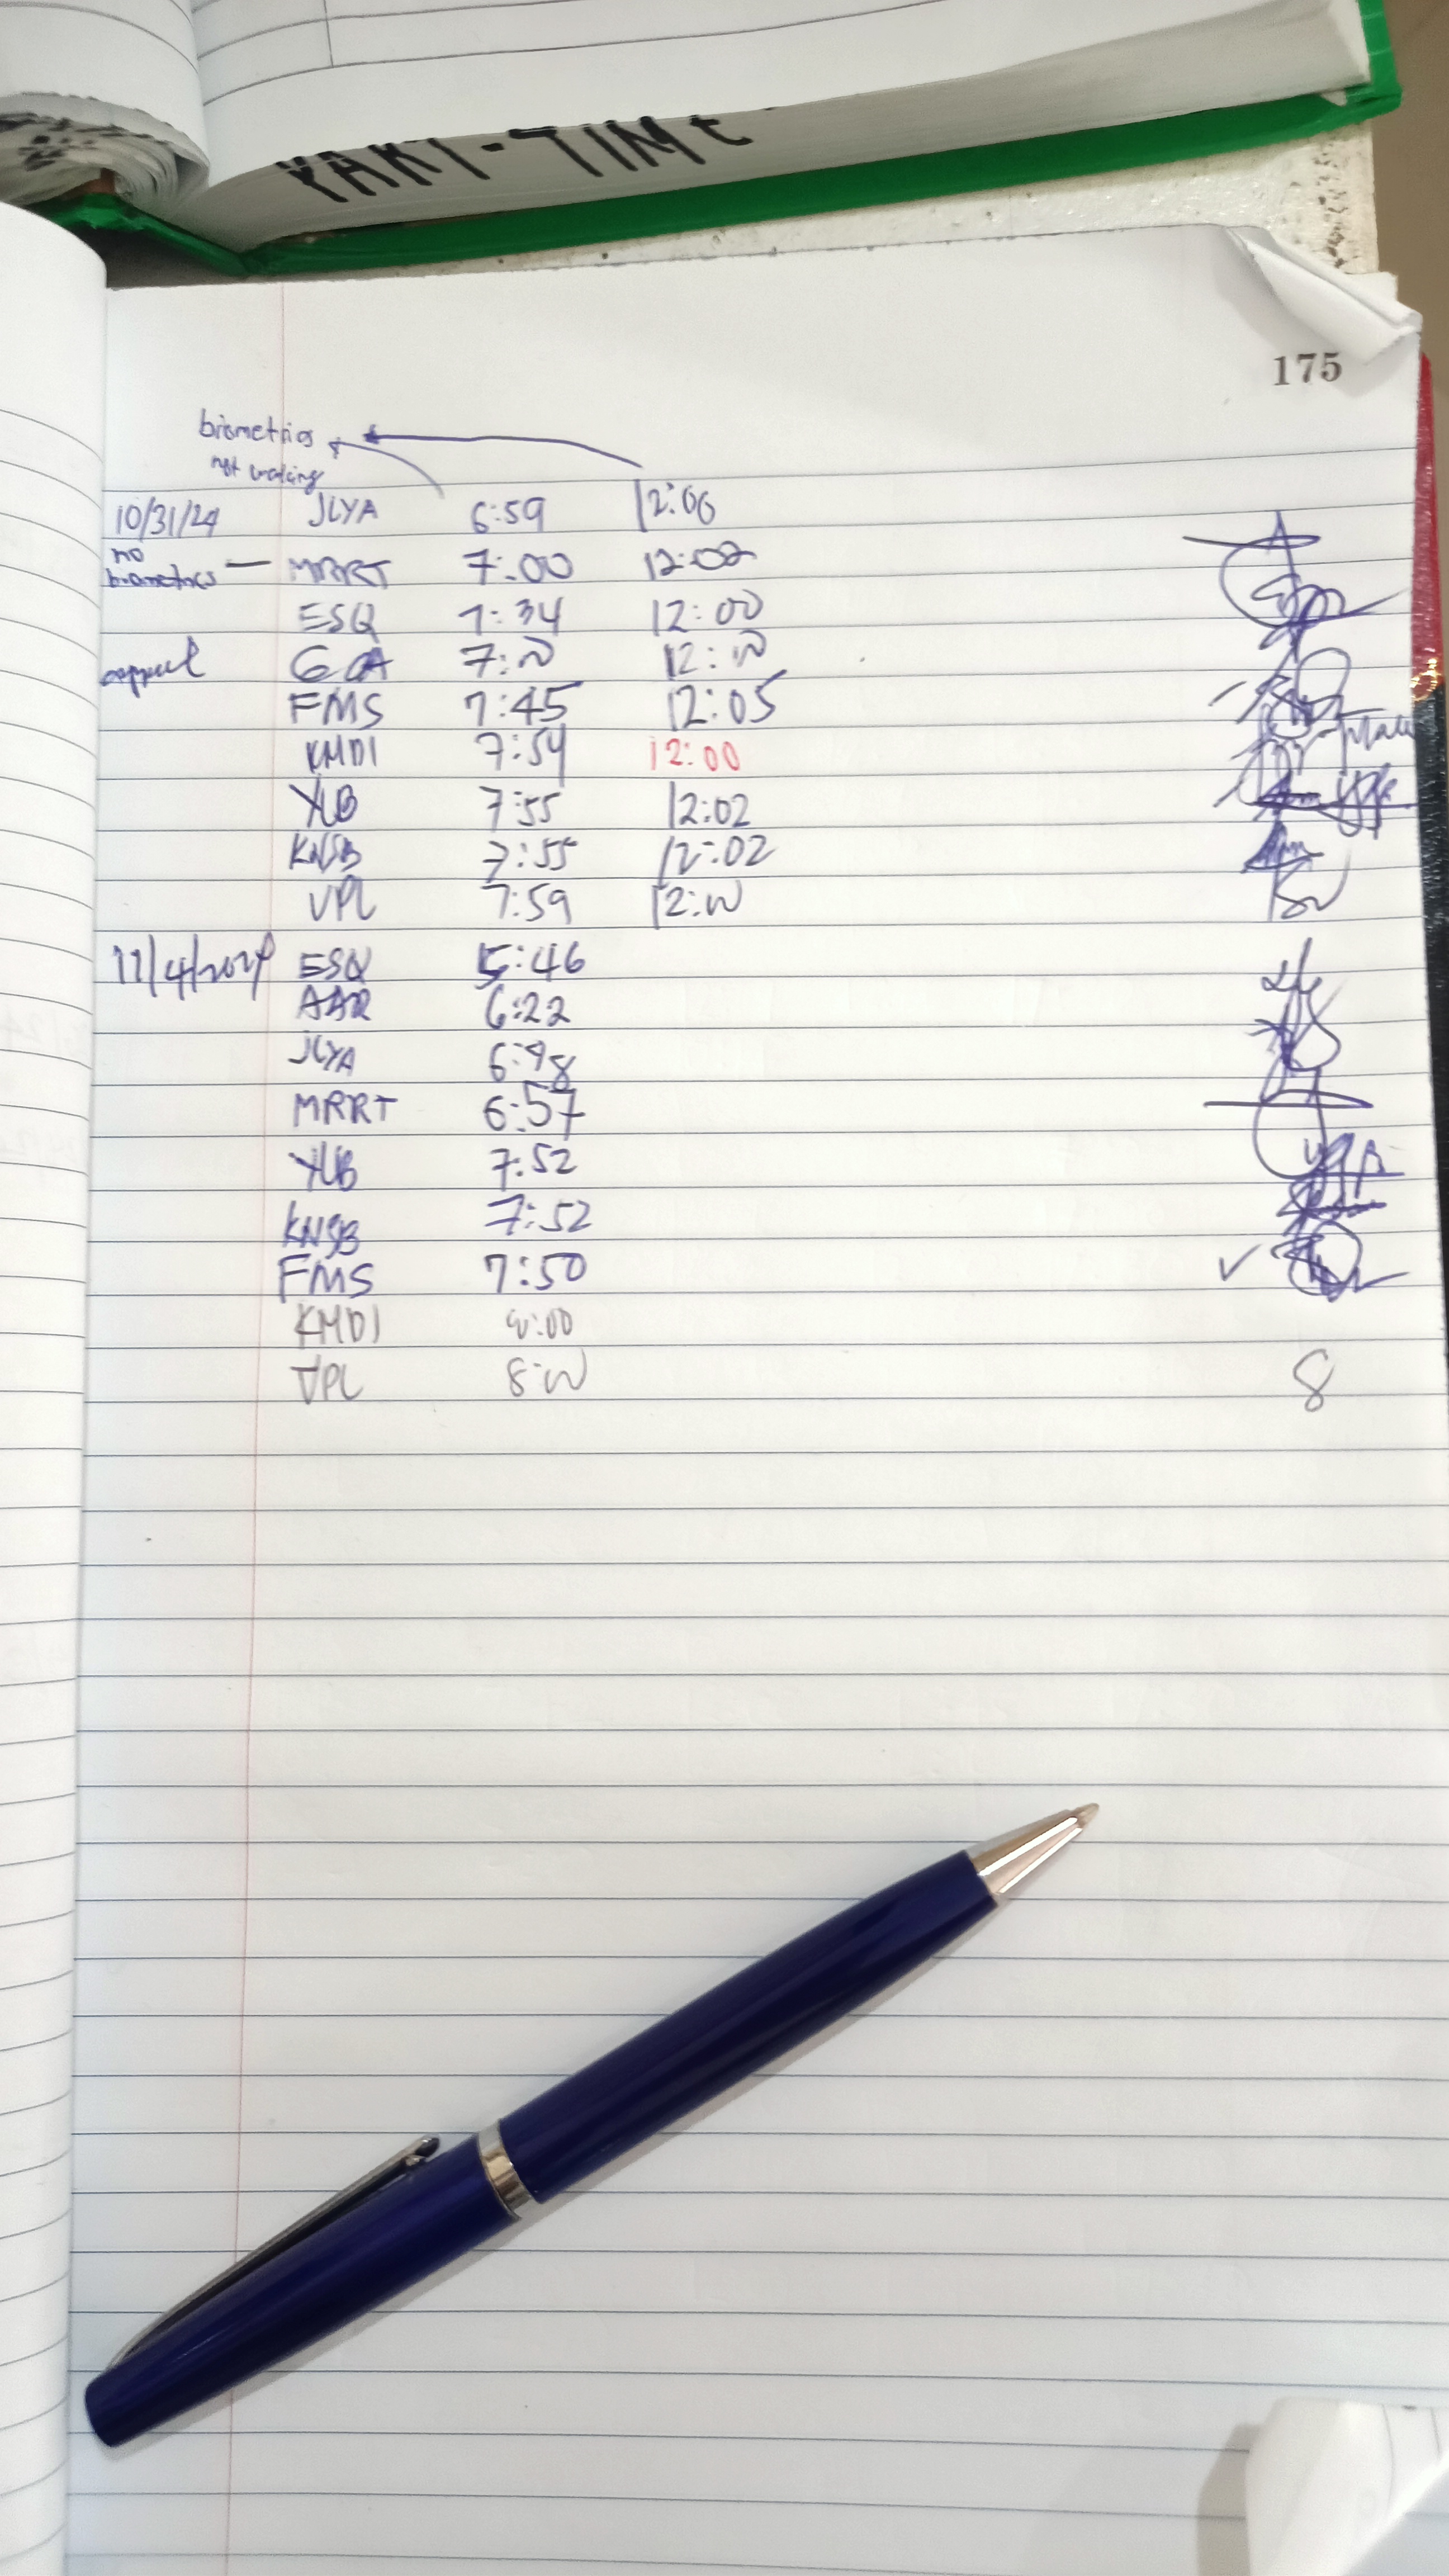 PART-TIME
175
biometrics
not working
10/31/24 JLYA 6:59 12:06
no
biometrics — MRRT 7:00 12:02
ESQ 7:34 12:00
7:00 12:00
FMS 7:45 12:05
KMDI 7:54 12:00
YLB 7:55 12:02
KNSB 7:55 12:02
VPL 7:59 12:00
11/4/2024 ESQ 5:46
AAR 6:22
JLYA 6:48
MRRT 6:57
YLB 7:52
KNSB 7:52
FMS 7:50
KMDI 8:00
VPL 8:00